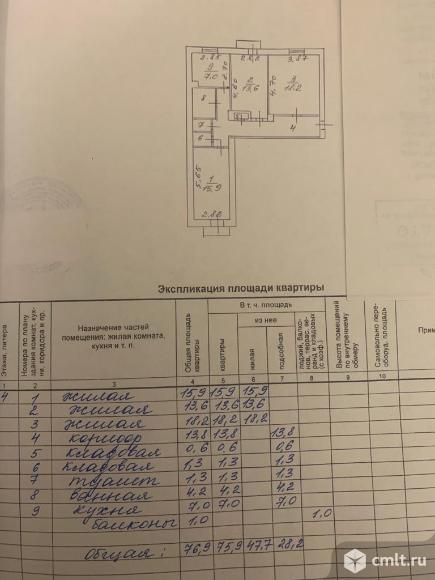 2.85
2.82
3.87
9
7.0
2.70
8
4.80
2
13,6
4.70
3
18,2
7
6
4
5.65
1
15,9
2.82
Экспликация площади квартиры
Этажи, литера
Номера по плану здания комнат, кухни, коридоров и пр.
Назначение частей помещения: жилая комната, кухня и т. п.
Общая площадь квартиры
В т. ч. площадь
квартиры
из нее
жилая
подсобная
лоджий, балконов, террас, веранд и кладовых (с коэф.)
Высота помещений по внутреннему обмеру
Самовольно переоборуд. площадь
Прим
1 2 3 4 5 6 7 8 9 10
4 1 жилая 15,9 15,9 15,9
2 жилая 13,6 13,6 13,6
3 жилая 18,2 18,2 18,2
4 коридор 13,8 13,8 13,8
5 кладовая 0,6 0,6 0,6
6 кладовая 1,3 1,3 1,3
7 туалет 1,3 1,3 1,3
8 ванная 4,2 4,2 4,2
9 кухня 7,0 7,0 7,0
балконы 1,0 1,0
Общая: 76,9 75,9 47,7 28,2
cmlt.ru